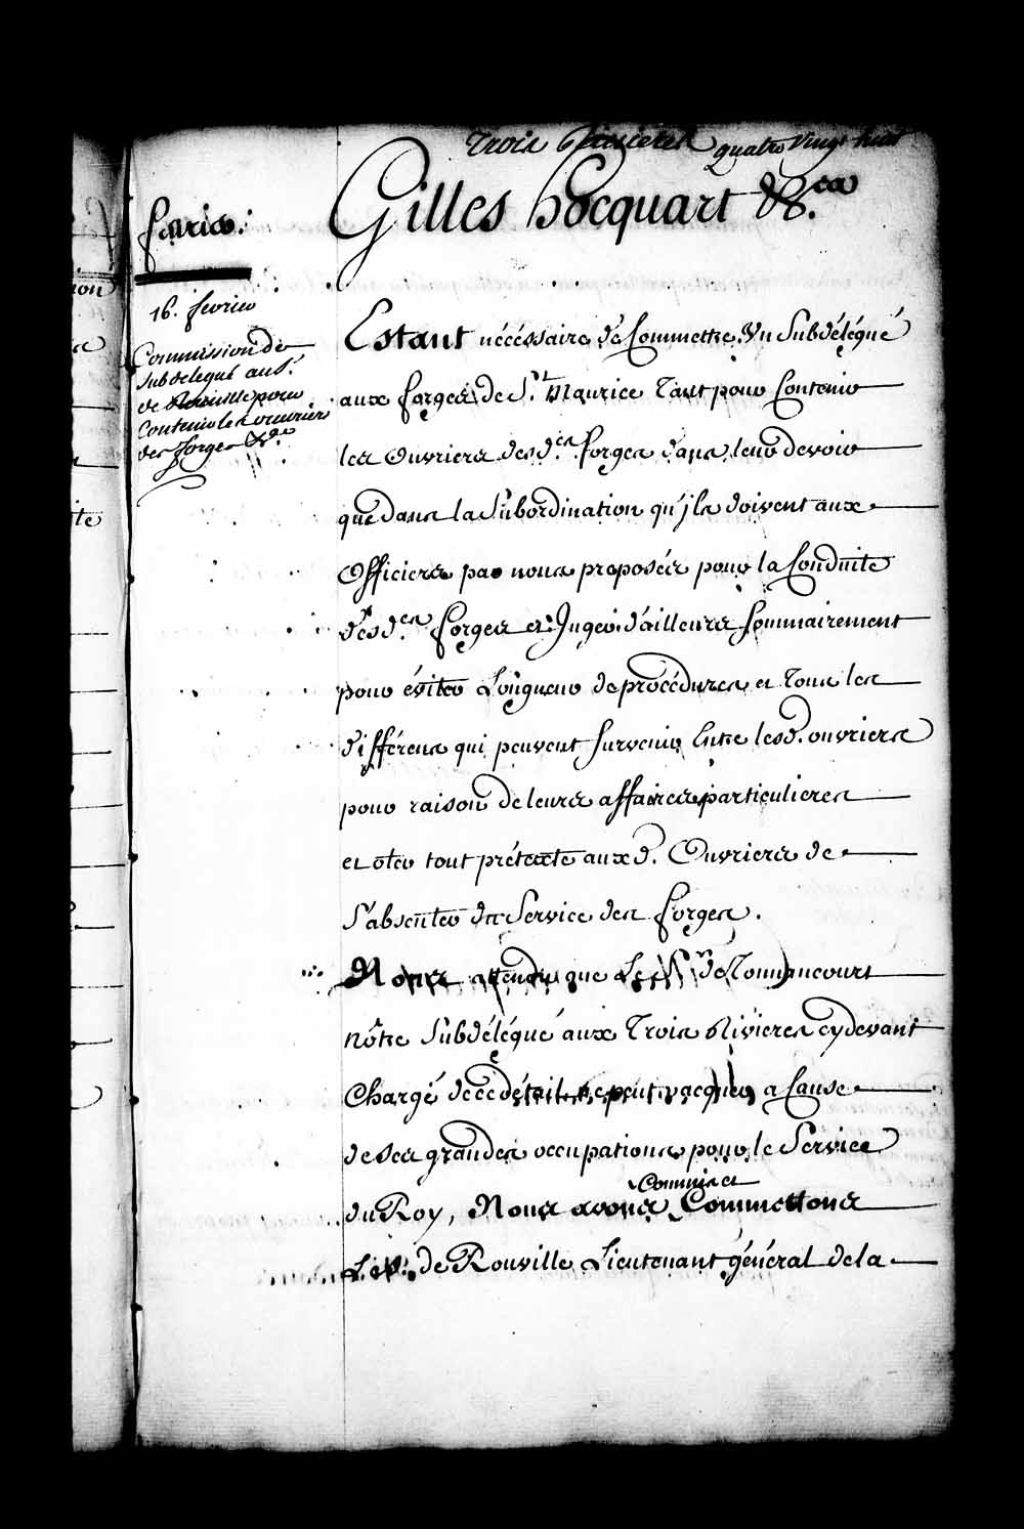 Trois Rivieres quatre vingt huit
Gilles hocquart &c.ca
fevrier.
16. fevrier
Commission de
subdelegué au S.r
de Rouville pour
Contenir les ouvriers
des forges &c.a
Estant nécéssaire de Commettre Un Subdélégué
aux forges de S.t Maurice Tant pour Contenir
les Ouvriers desd.es forges dans leur devoir
que dans la Subordination qu'jls doivent aux
Officiers par nous proposés pour la Conduite
desd.es forges et Juger d'ailleurs sommairement
pour éviter Longueur de procédures et Tous les
différens qui peuvent survenir Entre lesd. ouvriers
pour raison de leurs affaires particulieres
et oter tout prétexte auxd. Ouvriers de
s'absenter du Service des forges.
Nous attendu que Le S.r de Tonnancourt
nôtre Subdélégué aux Trois Rivieres cydevant
Chargé de ce détail ne peut vacquer a Cause
de ses grandes occupations pour le Service
Commis et
du Roy, Nous avons Commettons
Le S.r de Rouville Lieutenant général de la